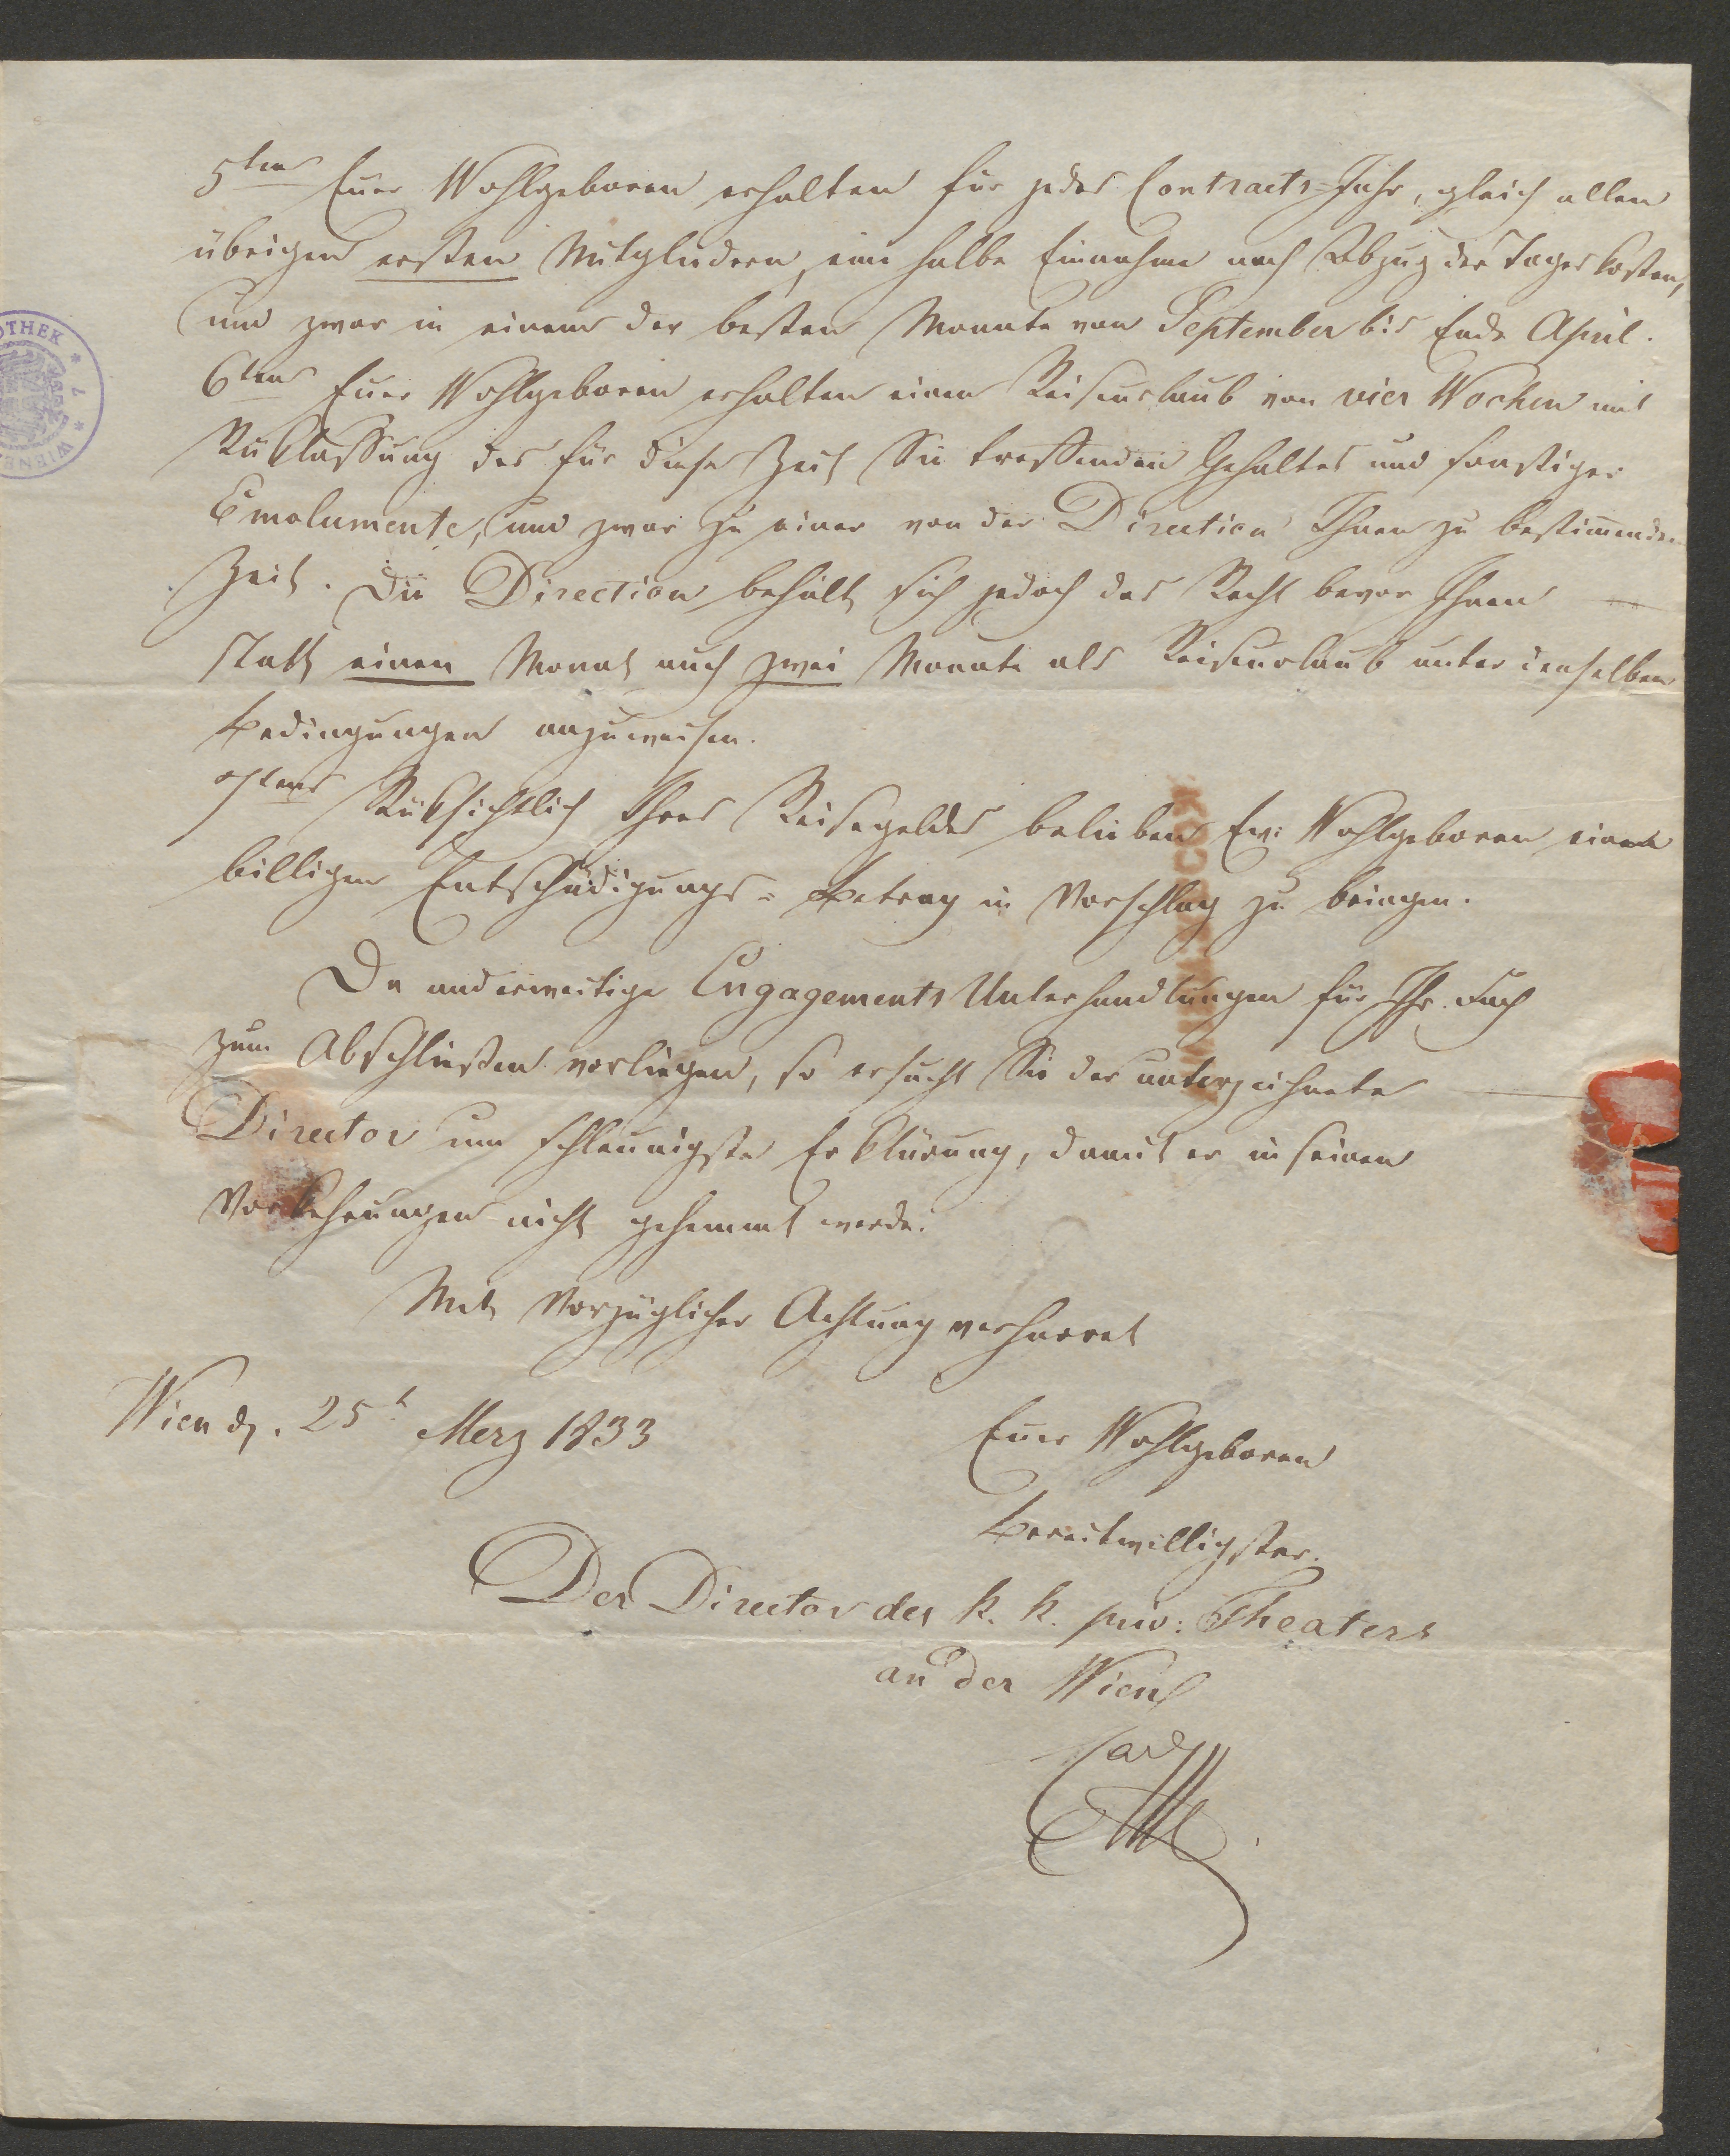 5tens Euer Wohlgeboren erhalten für jedes Contracts-Jahr, gleich allen
übrigen ersten Mitgliedern, eine halbe Einnahme nach Abzug der Tageskosten,
und zwar in einem der besten Monate von September bis Ende April.
6tens Euer Wohlgeboren erhalten einen Reiseurlaub von vier Wochen mit
Rüklassung des für diese Zeit Sie treffenden Gehaltes und sonstiger
Emolumente, und zwar zu einer von der Direction Ihnen zu bestimmenden
Zeit. Die Direction behält sich jedoch das Recht bevor Ihnen
statt einen Monat auch zwei Monate als Reiseurlaub unter denselben
Bedingungen anzuweisen.
7tens Rüksichtlich Ihres Reisegeldes belieben Ew: Wohlgeboren einen
billigen Entschädigungs-Betrag in Vorschlag zu bringen.
Da anderweitige Engagements Unterhandlungen für Ihr Fach
zum Abschließen vorliegen, so ersucht Sie der unterzeichnete
Director um schleunigste Erklärung, damit er in seinen
Vorkehrungen nicht gehemmt werde.
Mit vorzüglicher Achtung verharret
Wien d. 25t Merz 1833
Euer Wohlgeboren
bereitwilligster
Der Director des k. k. priv: Theaters
an der Wien
Carl
OTHEK * 7 * WIENE